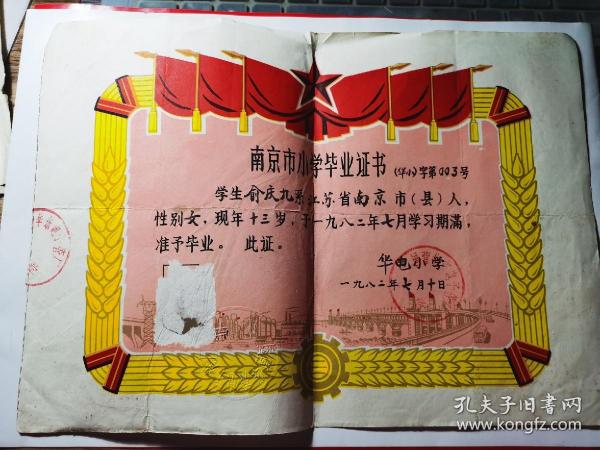 南京市小学毕业证书 (华小)字第003号
学生俞庆九系江苏省南京市(县)人,
性别女,现年十三岁,于一九八二年七月学习期满,
准予毕业。此证。
华电小学
一九八二年七月十日
孔夫子旧书网
www.kongfz.com